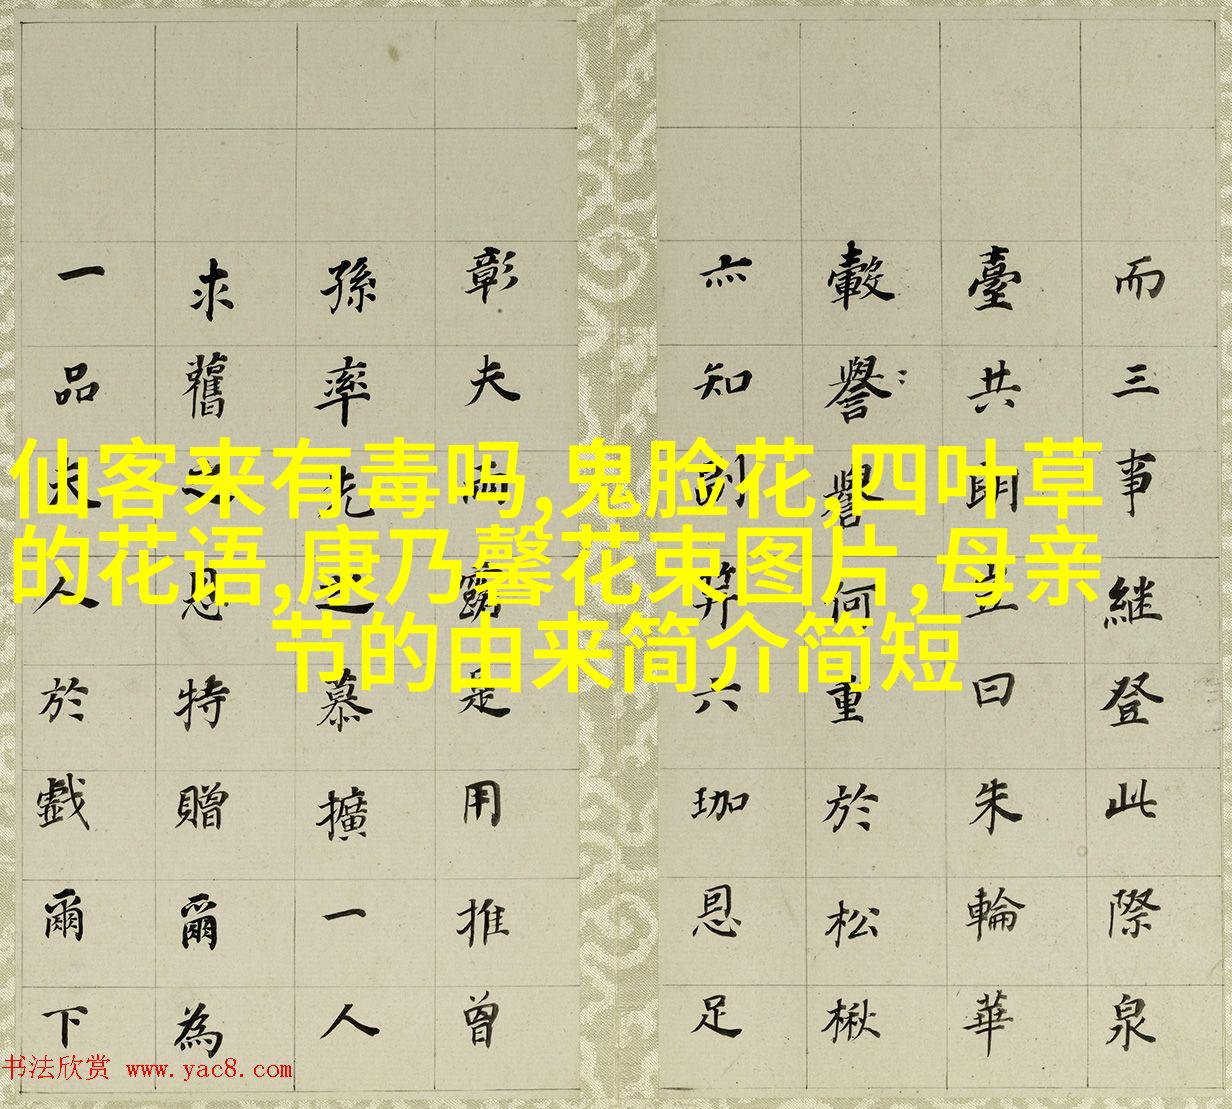 仙客来有毒吗,鬼脸花,四叶草
的花语,康乃馨花束图片,母亲
节的由来简介简短
而三事継登此際泉
臺共立曰朱輪華
轂譽何重於松楸
亦知副笄六珈恩足
彰夫是用推曾
孫率先之慕擴一人
求舊之恩特贈爾為
一品夫人於戲爾下
书法欣赏 www.yac8.com